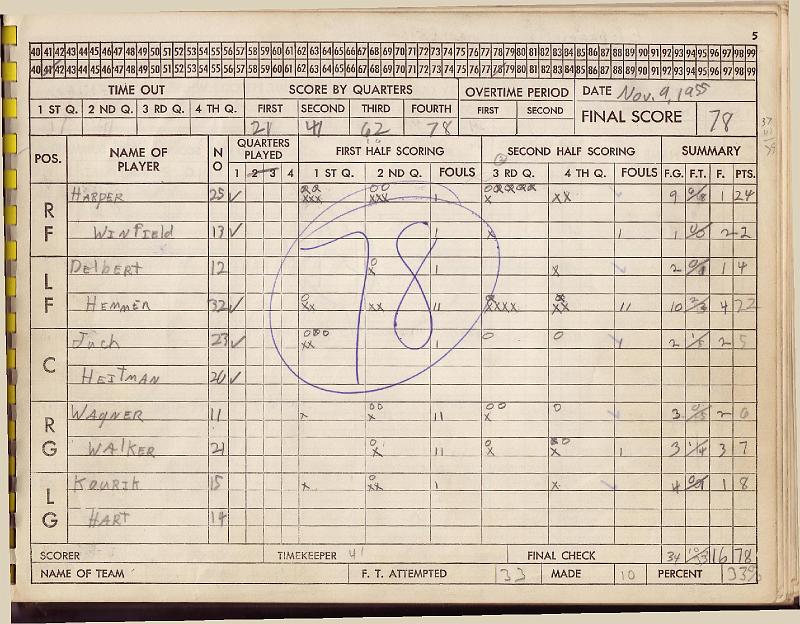 5
40 41 42 43 44 45 46 47 48 49 50 51 52 53 54 55 56 57 58 59 60 61 62 63 64 65 66 67 68 69 70 71 72 73 74 75 76 77 78 79 80 81 82 83 84 85 86 87 88 89 90 91 92 93 94 95 96 97 98 99
40 41 42 43 44 45 46 47 48 49 50 51 52 53 54 55 56 57 58 59 60 61 62 63 64 65 66 67 68 69 70 71 72 73 74 75 76 77 78 79 80 81 82 83 84 85 86 87 88 89 90 91 92 93 94 95 96 97 98 99
TIME OUT SCORE BY QUARTERS OVERTIME PERIOD DATE Nov. 9, 1955
1 ST Q. 2 ND Q. 3 RD Q. 4 TH Q. FIRST SECOND THIRD FOURTH FIRST SECOND FINAL SCORE 78
21 41 62 78
POS. NAME OF PLAYER NO QUARTERS PLAYED FIRST HALF SCORING SECOND HALF SCORING SUMMARY
1 2 3 4 1 ST Q. 2 ND Q. FOULS 3 RD Q. 4 TH Q. FOULS F.G. F.T. F. PTS.
RF HARPER 25 9 1 24
WINFIELD 13 1 2 2
LF Delbert 12 2 1 4
HEMMER 32 10 4 22
C Juch 23 2 2 5
HEITMAN 20
RG WAGNER 11 3 2 6
WALKER 21 3 1/4 3 7
LG KOURIK 15 4 1 8
HART 14
78
SCORER TIMEKEEPER 41 FINAL CHECK 34 10/33 16 78
NAME OF TEAM F. T. ATTEMPTED 33 MADE 10 PERCENT 33%